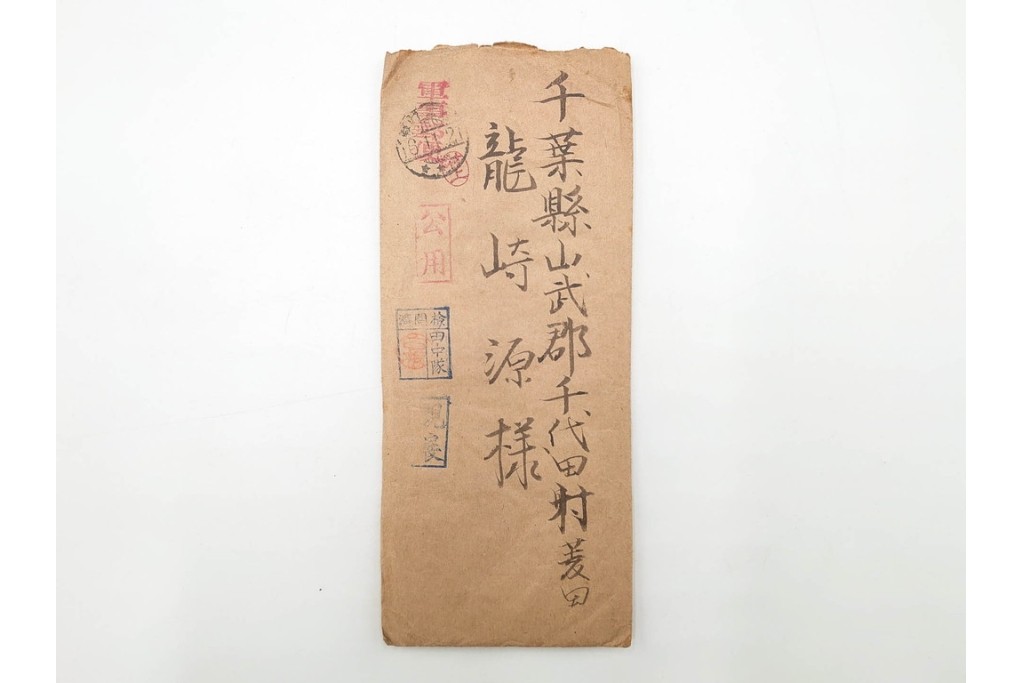 千葉縣山武郡千代田村菱田
龍崎源様
軍事郵便
公用
検閲濟
田中隊